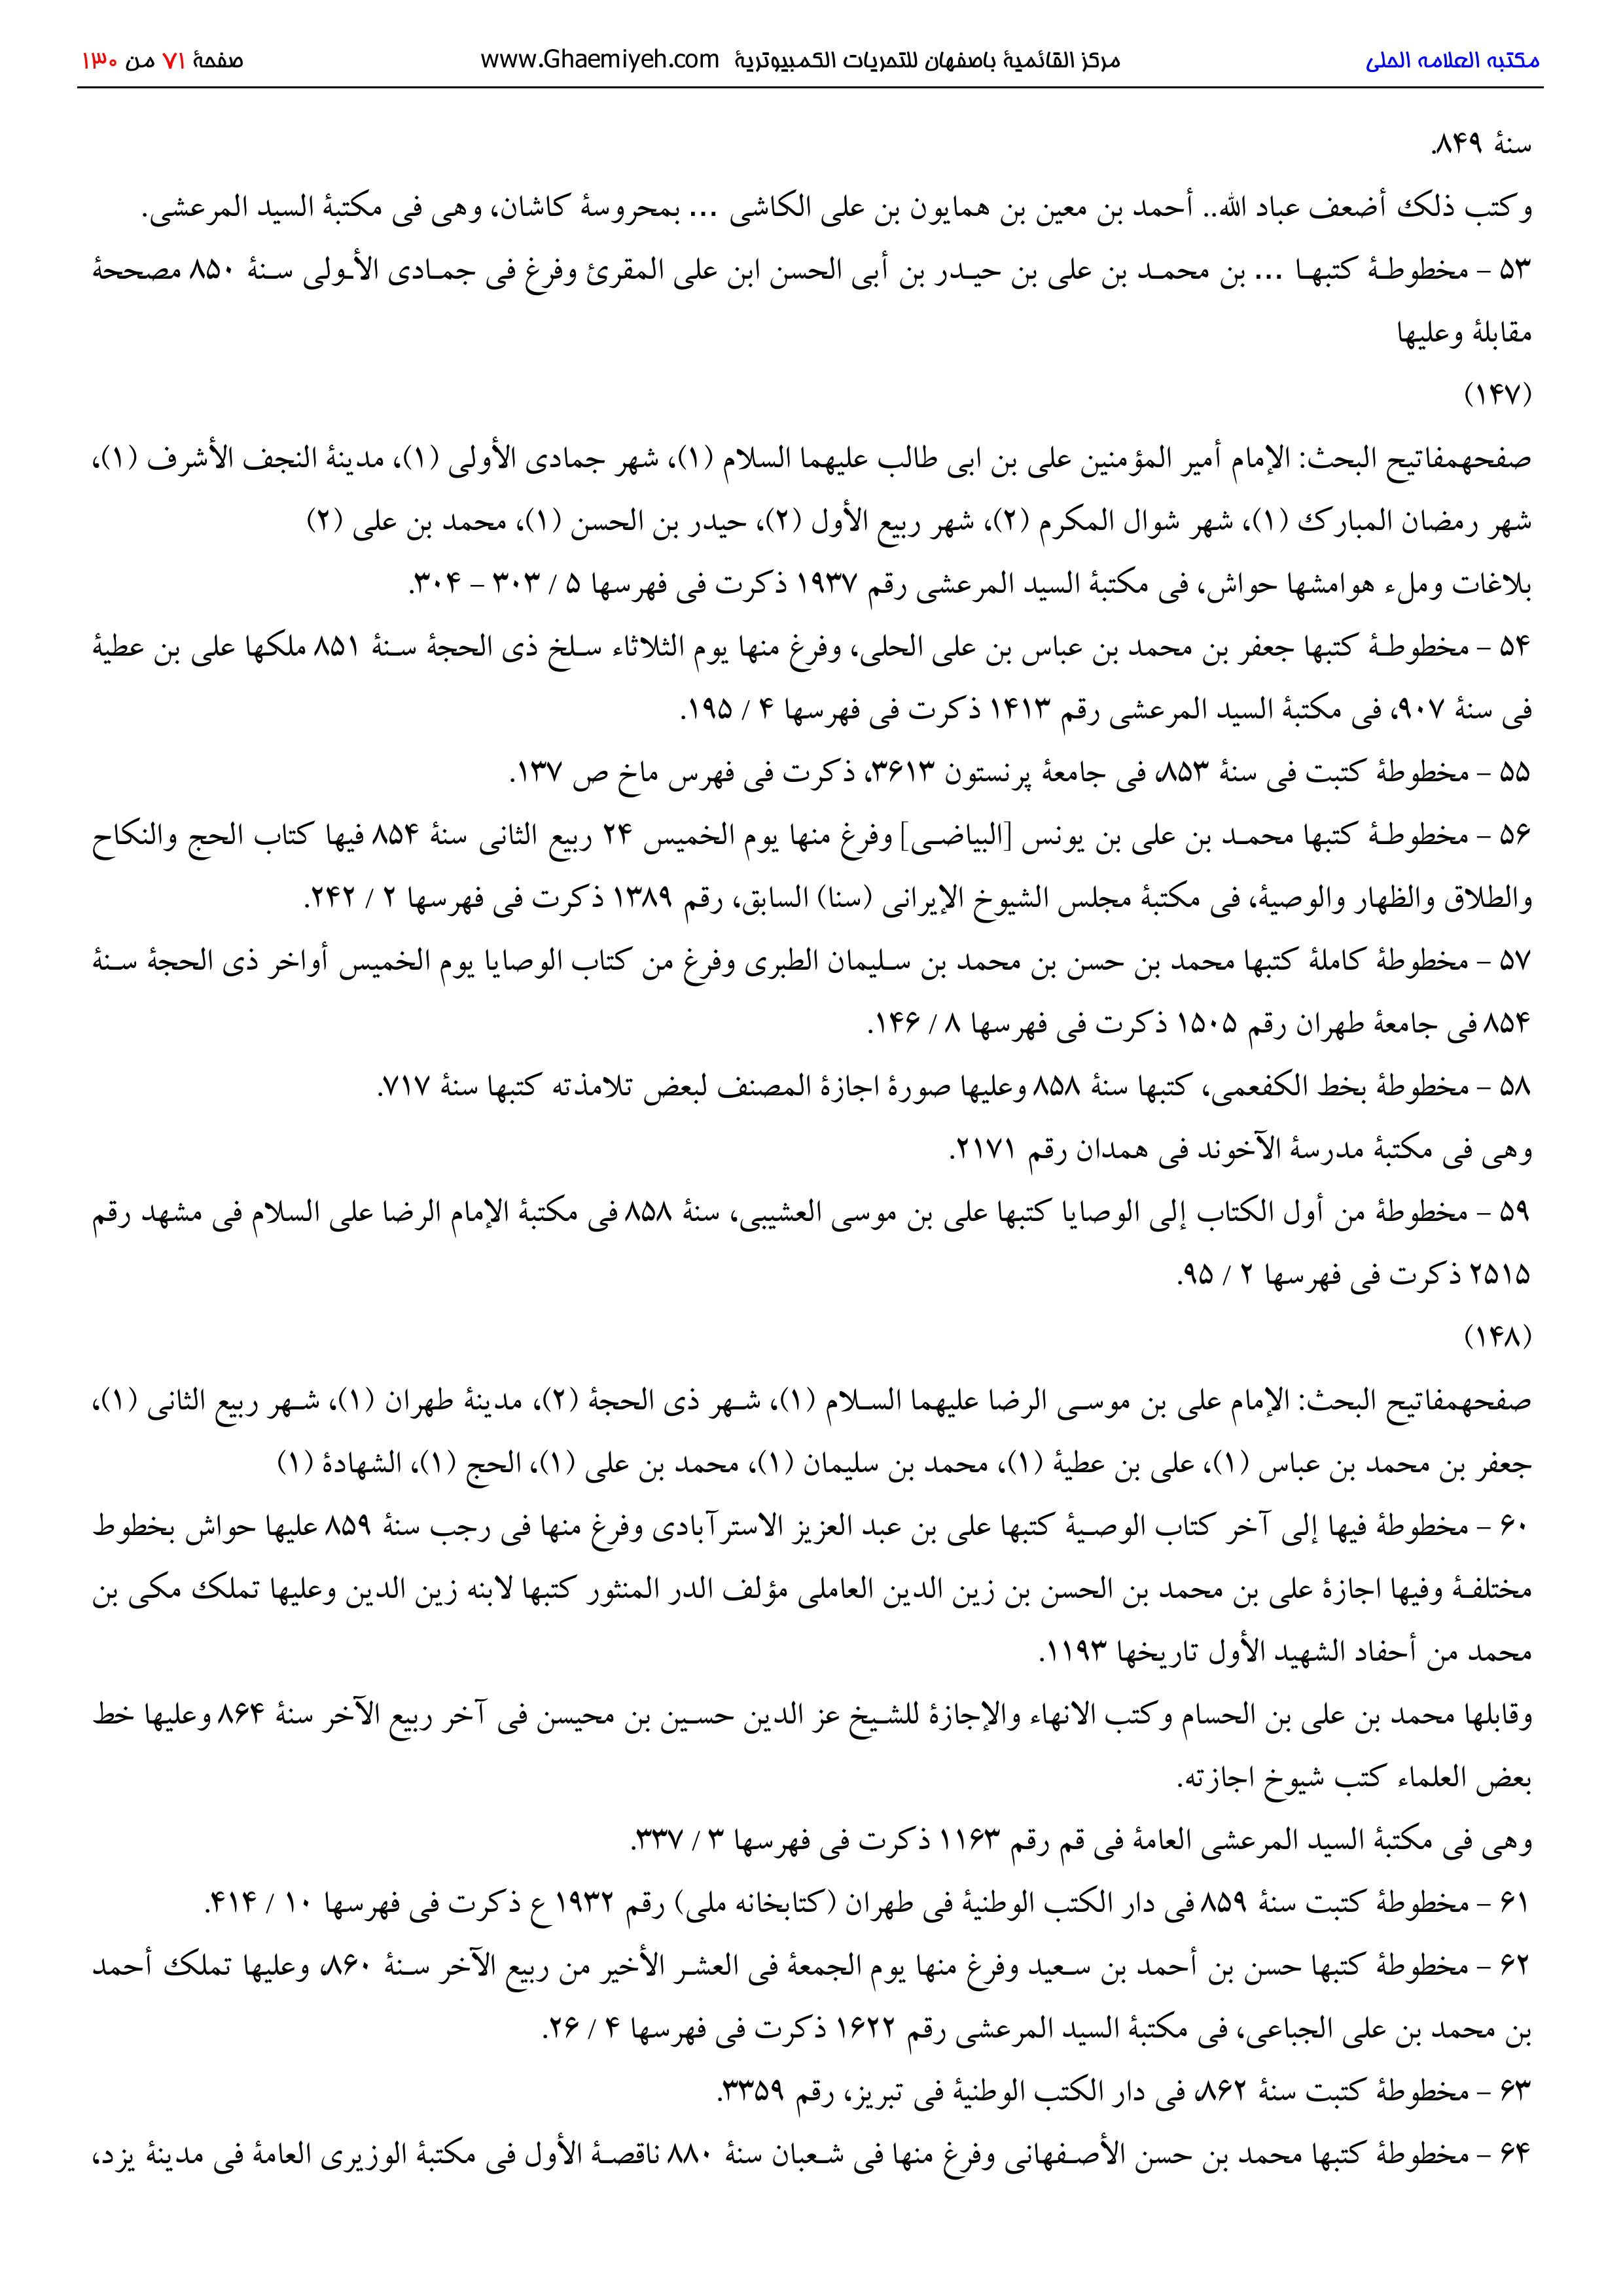 مكتبه العلامه الحلى مركز القائمیۀ باصفهان للتحریات الكمبیوتریۀ www.Ghaemiyeh.com صفحۀ ۷۱ من ۱۳۰
سنۀ ۸۴۹.
وكتب ذلك أضعف عباد الله.. أحمد بن معین بن همایون بن علی الكاشی ... بمحروسۀ كاشان، وهی فی مكتبۀ السید المرعشی.
۵۳ - مخطوطۀ كتبها ... بن محمد بن علی بن حیدر بن أبی الحسن ابن علی المقرئ وفرغ فی جمادی الأولی سنۀ ۸۵۰ مصححۀ
مقابلۀ وعلیها
(۱۴۷)
صفحهمفاتیح البحث: الإمام أمیر المؤمنین علی بن ابی طالب علیهما السلام (۱)، شهر جمادی الأولی (۱)، مدینۀ النجف الأشرف (۱)،
شهر رمضان المبارك (۱)، شهر شوال المكرم (۲)، شهر ربیع الأول (۲)، حیدر بن الحسن (۱)، محمد بن علی (۲)
بلاغات وملء هوامشها حواش، فی مكتبۀ السید المرعشی رقم ۱۹۳۷ ذكرت فی فهرسها ۵ / ۳۰۳ - ۳۰۴.
۵۴ - مخطوطۀ كتبها جعفر بن محمد بن عباس بن علی الحلی، وفرغ منها یوم الثلاثاء سلخ ذی الحجۀ سنۀ ۸۵۱ ملكها علی بن عطیۀ
فی سنۀ ۹۰۷، فی مكتبۀ السید المرعشی رقم ۱۴۱۳ ذكرت فی فهرسها ۴ / ۱۹۵.
۵۵ - مخطوطۀ كتبت فی سنۀ ۸۵۳، فی جامعۀ پرنستون ۳۶۱۳، ذكرت فی فهرس ماخ ص ۱۳۷.
۵۶ - مخطوطۀ كتبها محمد بن علی بن یونس [البیاضی] وفرغ منها یوم الخمیس ۲۴ ربیع الثانی سنۀ ۸۵۴ فیها كتاب الحج والنكاح
والطلاق والظهار والوصیۀ، فی مكتبۀ مجلس الشیوخ الإیرانی (سنا) السابق، رقم ۱۳۸۹ ذكرت فی فهرسها ۲ / ۲۴۲.
۵۷ - مخطوطۀ كاملۀ كتبها محمد بن حسن بن محمد بن سلیمان الطبری وفرغ من كتاب الوصایا یوم الخمیس أواخر ذی الحجۀ سنۀ
۸۵۴ فی جامعۀ طهران رقم ۱۵۰۵ ذكرت فی فهرسها ۸ / ۱۴۶.
۵۸ - مخطوطۀ بخط الكفعمی، كتبها سنۀ ۸۵۸ وعلیها صورۀ اجازۀ المصنف لبعض تلامذته كتبها سنۀ ۷۱۷.
وهی فی مكتبۀ مدرسۀ الآخوند فی همدان رقم ۲۱۷۱.
۵۹ - مخطوطۀ من أول الكتاب إلی الوصایا كتبها علی بن موسی العشیبی، سنۀ ۸۵۸ فی مكتبۀ الإمام الرضا علی السلام فی مشهد رقم
۲۵۱۵ ذكرت فی فهرسها ۲ / ۹۵.
(۱۴۸)
صفحهمفاتیح البحث: الإمام علی بن موسی الرضا علیهما السلام (۱)، شهر ذی الحجۀ (۲)، مدینۀ طهران (۱)، شهر ربیع الثانی (۱)،
جعفر بن محمد بن عباس (۱)، علی بن عطیۀ (۱)، محمد بن سلیمان (۱)، محمد بن علی (۱)، الحج (۱)، الشهادۀ (۱)
۶۰ - مخطوطۀ فیها إلی آخر كتاب الوصیۀ كتبها علی بن عبد العزیز الاسترآبادی وفرغ منها فی رجب سنۀ ۸۵۹ علیها حواش بخطوط
مختلفۀ وفیها اجازۀ علی بن محمد بن الحسن بن زین الدین العاملی مؤلف الدر المنثور كتبها لابنه زین الدین وعلیها تملك مكی بن
محمد من أحفاد الشهید الأول تاریخها ۱۱۹۳.
وقابلها محمد بن علی بن الحسام وكتب الانهاء والإجازۀ للشیخ عز الدین حسین بن محیسن فی آخر ربیع الآخر سنۀ ۸۶۴ وعلیها خط
بعض العلماء كتب شیوخ اجازته.
وهی فی مكتبۀ السید المرعشی العامۀ فی قم رقم ۱۱۶۳ ذكرت فی فهرسها ۳ / ۳۳۷.
۶۱ - مخطوطۀ كتبت سنۀ ۸۵۹ فی دار الكتب الوطنیۀ فی طهران (كتابخانه ملی) رقم ۱۹۳۲ ع ذكرت فی فهرسها ۱۰ / ۴۱۴.
۶۲ - مخطوطۀ كتبها حسن بن أحمد بن سعید وفرغ منها یوم الجمعۀ فی العشر الأخیر من ربیع الآخر سنۀ ۸۶۰، وعلیها تملك أحمد
بن محمد بن علی الجباعی، فی مكتبۀ السید المرعشی رقم ۱۶۲۲ ذكرت فی فهرسها ۴ / ۲۶.
۶۳ - مخطوطۀ كتبت سنۀ ۸۶۲، فی دار الكتب الوطنیۀ فی تبریز، رقم ۳۳۵۹.
۶۴ - مخطوطۀ كتبها محمد بن حسن الأصفهانی وفرغ منها فی شعبان سنۀ ۸۸۰ ناقصۀ الأول فی مكتبۀ الوزیری العامۀ فی مدینۀ یزد،